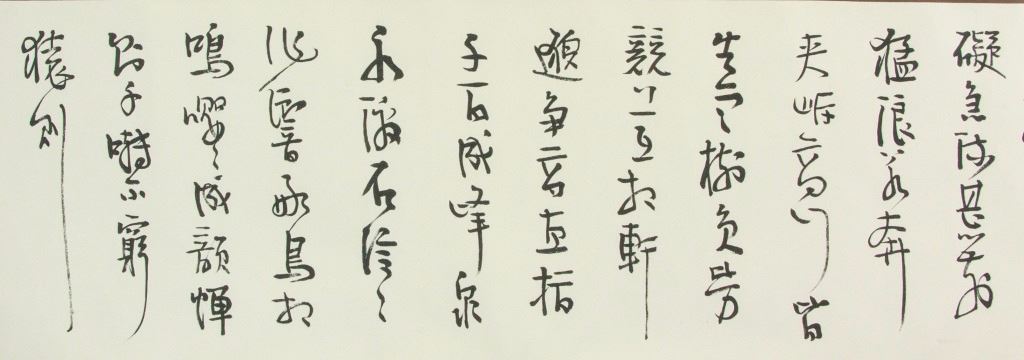 礙急湍甚箭
猛浪若奔
夾岸高山皆
生寒樹負勢
競上互相軒
邈爭高直指
千百成峰泉
水激石泠々
作響好鳥相
鳴嚶々成韻蟬
則千囀不窮
猿則